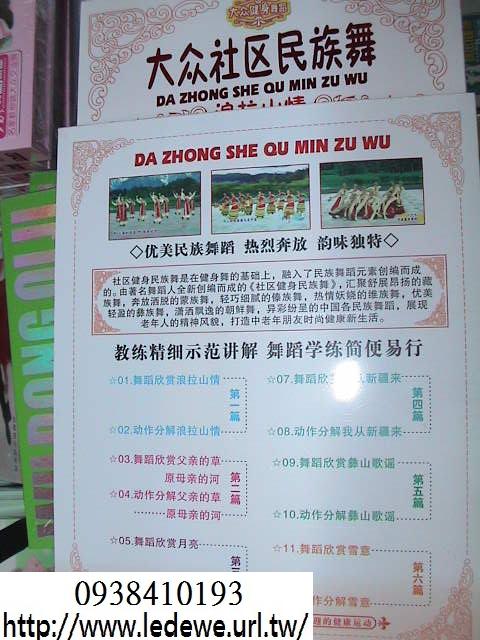 大众健身舞蹈
大众社区民族舞
DA ZHONG SHE QU MIN ZU WU
浪拉山情
DA ZHONG SHE QU MIN ZU WU
◇优美民族舞蹈 热烈奔放 韵味独特◇
社区健身民族舞是在健身舞的基础上，融入了民族舞蹈元素创编而成
的。由著名舞蹈人全新创编而成的《社区健身民族舞》，汇聚舒展昂扬的藏
族舞，奔放洒脱的蒙族舞，轻巧细腻的傣族舞，热情妖娆的维族舞，优美
轻盈的彝族舞，潇洒飘逸的朝鲜舞，异彩纷呈的中国各民族舞蹈，展现
老年人的精神风貌，打造中老年朋友时尚健康新生活。
教练精细示范讲解 舞蹈学练简便易行
☆01.舞蹈欣赏浪拉山情
第一篇
☆02.动作分解浪拉山情
☆03.舞蹈欣赏父亲的草
原母亲的河
第二篇
☆04.动作分解父亲的草
原母亲的河
☆05.舞蹈欣赏月亮
第三
☆07.舞蹈欣赏我从新疆来
第四篇
☆08.动作分解我从新疆来
☆09.舞蹈欣赏彝山歌谣
第五篇
☆10.动作分解彝山歌谣
☆11.舞蹈欣赏雪意
第六篇
分解雪意
迎的健康运动
0938410193
http://www.ledewe.url.tw/